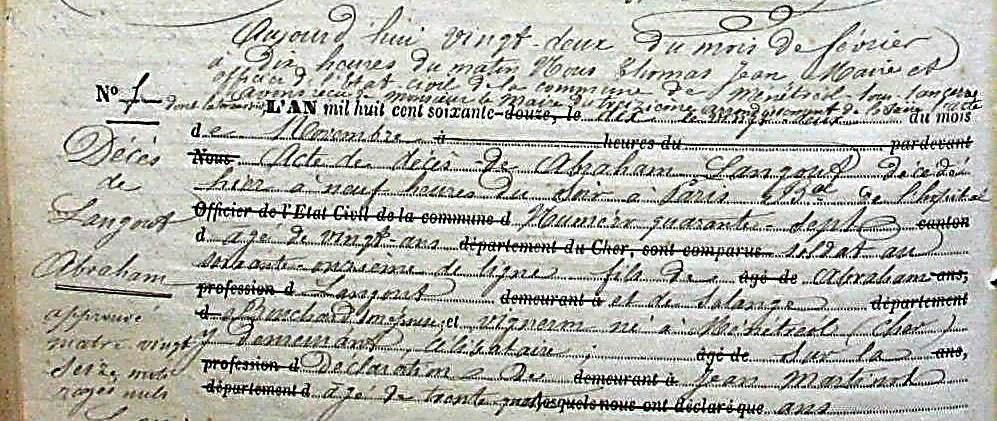 Aujourd'hui vingt-deux du mois de février
à Dix heures du matin Nous Thomas Jean, Maire et
officier d'état civil de la commune de Ménétréol sous Sancerre
avons reçu de monsieur le Maire du treizième arrondissement de Paris acte
N° 1 dont la teneur L'AN mil huit cent soixante-douze, le dix du mois
de Novembre à heures du pardevant
Décès Nous Acte de décès de Abraham Langout décédé
de hier à neuf heures du soir à Paris Bd de l'hôpital
Langout Officier de l'Etat Civil de la commune d Numéro quarante-sept canton
d age de vingt ans département du Cher, sont comparus soldat au
Abraham soixante-onzième de ligne fils de agé de Abraham ans,
profession d Langout demeurant à et de Solange département
approuvé d Blanchard et vigneron né à Ménétréol (Cher)
quatre vingt y demeurant, célibataire; agé de sur la ans,
seize mots profession d déclaration de demeurant à Jean Martinot
rayés nuls département d age de trente lesquels nous ont déclaré que ans